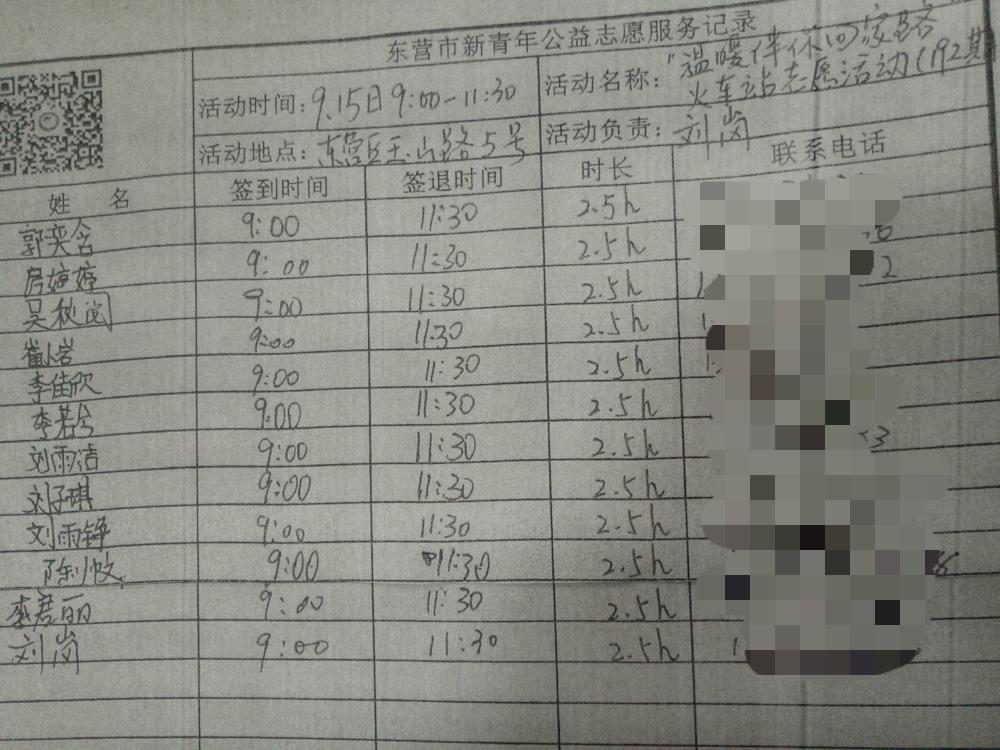 东营市新青年公益志愿服务记录
活动时间：9.15日9:00-11:30 活动名称："温暖伴你回家路"
火车站志愿活动(192期
活动地点：东营区玉山路5号 活动负责：刘岗
姓 名 签到时间 签退时间 时长 联系电话
郭奕含 9:00 11:30 2.5h
房婷婷 9:00 11:30 2.5h
吴秋阅 9:00 11:30 2.5h
崔小岩 9:00 11:30 2.5h
李佳欣 9:00 11:30 2.5h
李若兮 9:00 11:30 2.5h
刘雨洁 9:00 11:30 2.5h
刘子琪 9:00 11:30 2.5h
刘雨铮 9:00 11:30 2.5h
9:00 11:30 2.5h
李君丽 9:00 11:30 2.5h
刘岗 9:00 11:30 2.5h